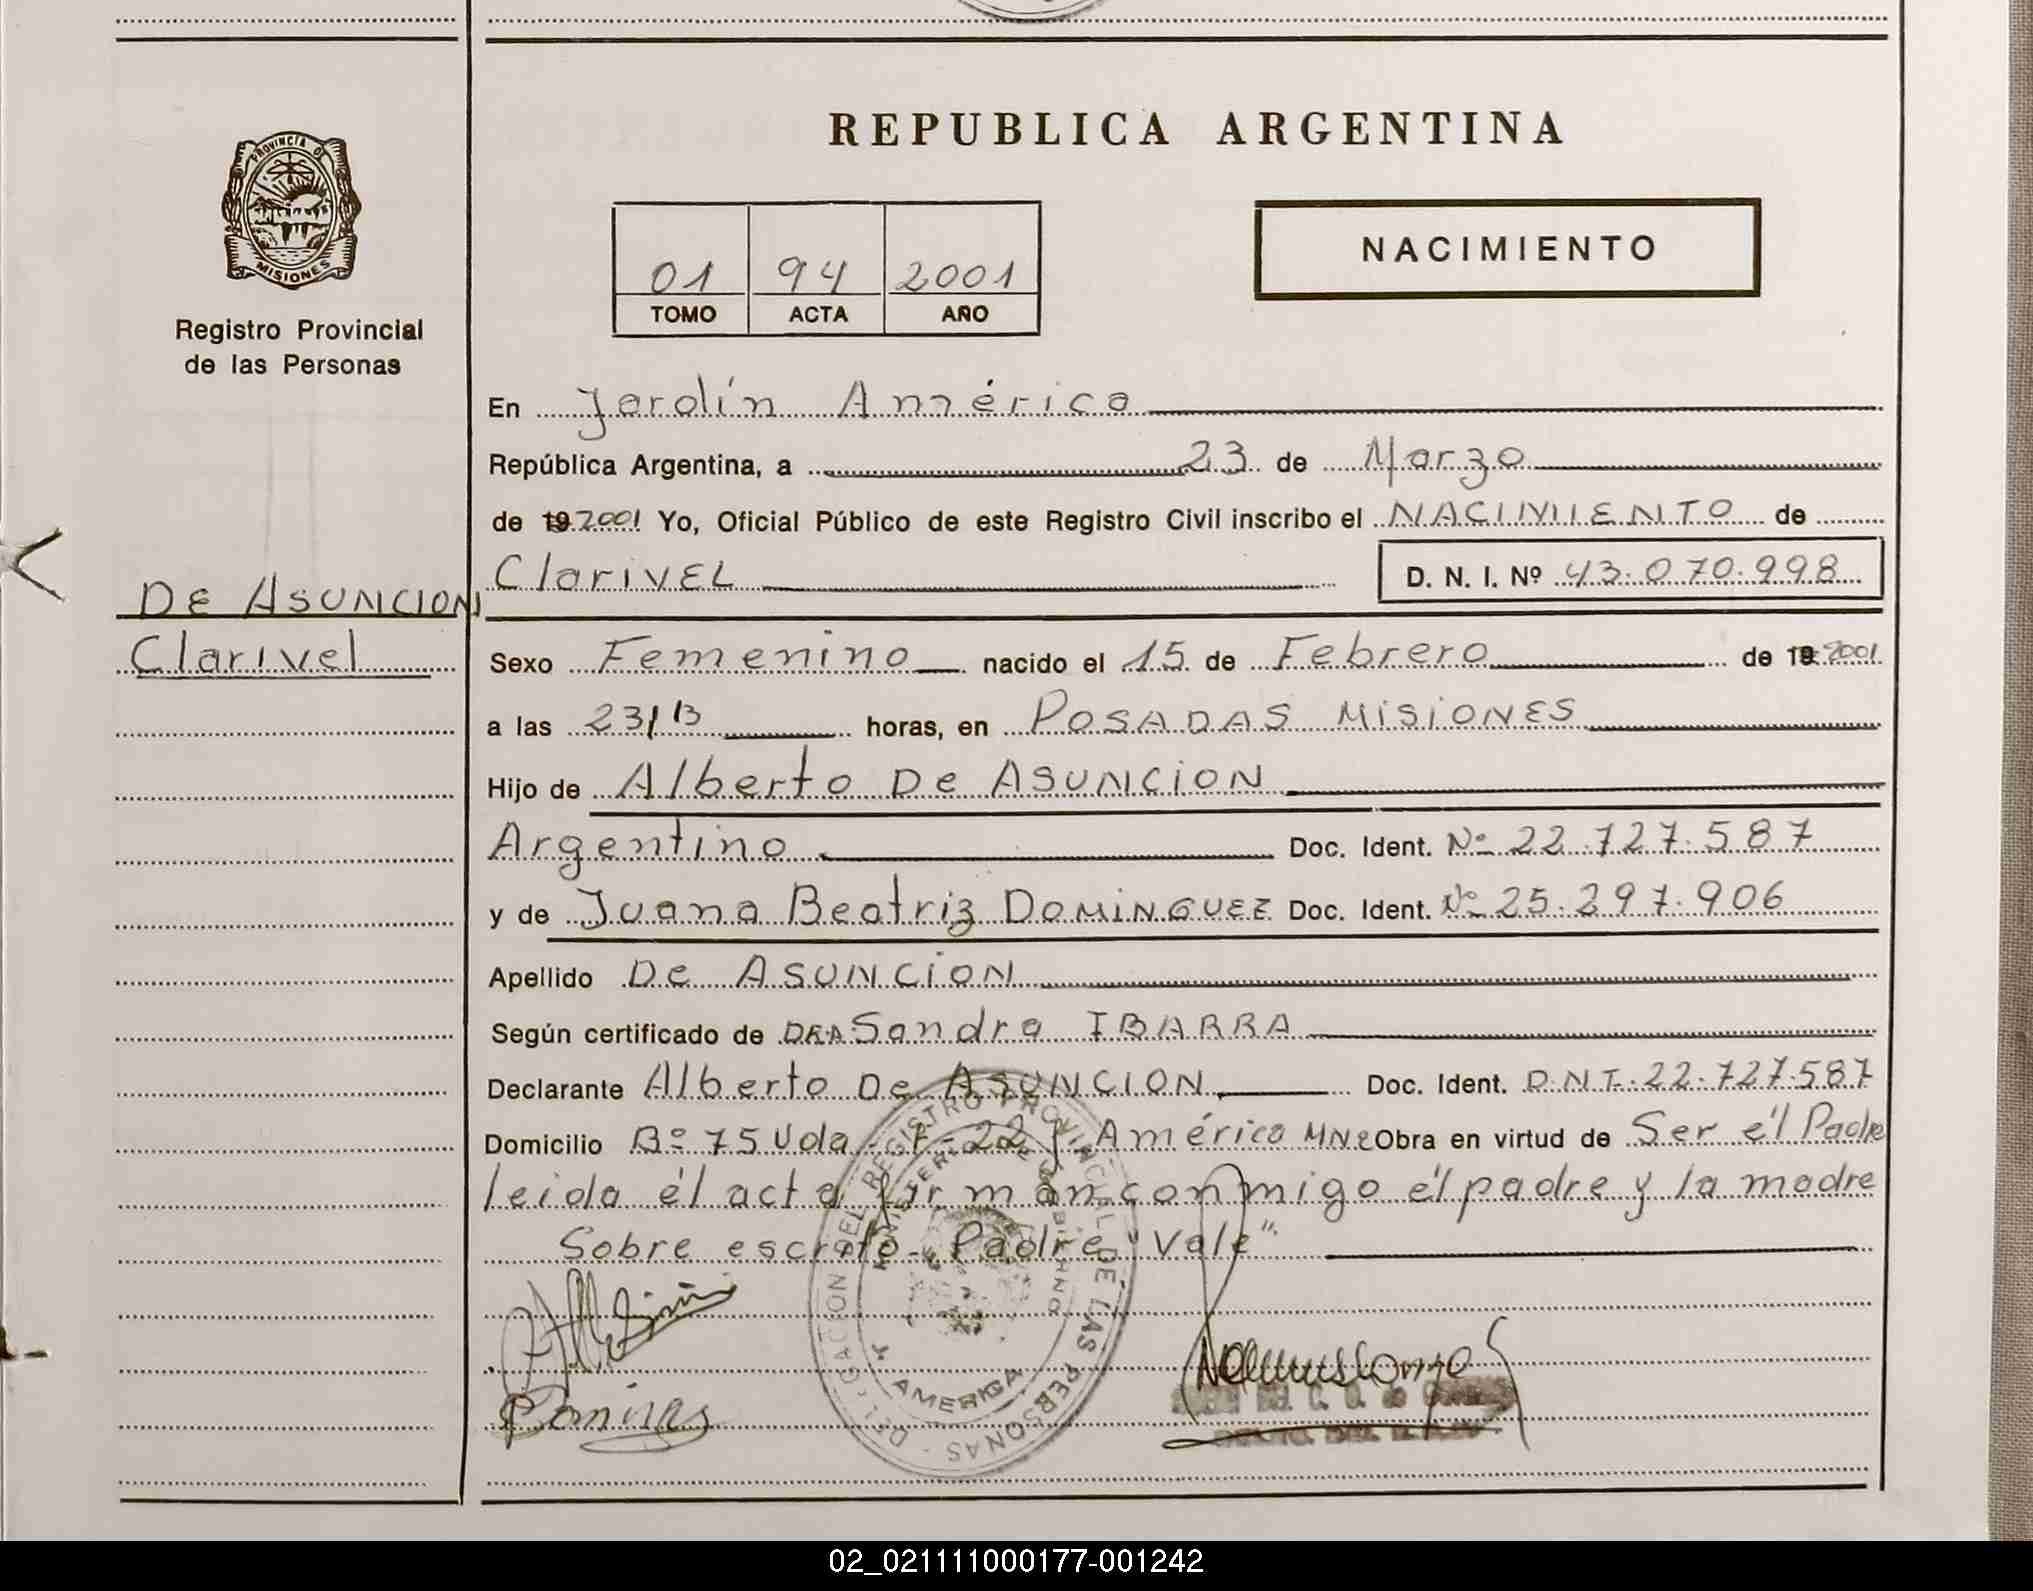 REPUBLICA ARGENTINA
PROVINCIA DE
MISIONES
Registro Provincial
de las Personas
01 94 2001
TOMO ACTA AÑO
NACIMIENTO
En Jardín América
República Argentina, a 23 de Marzo
de 19 2001 Yo, Oficial Público de este Registro Civil inscribo el NACIMIENTO de
Clarivel D. N. I. Nº 43.070.998
DE ASUNCION
Clarivel
Sexo Femenino nacido el 15 de Febrero de 19 2001
a las 23/13 horas, en POSADAS MISIONES
Hijo de Alberto De ASUNCION
Argentino Doc. Ident. Nº 22.727.587
y de Juana Beatriz DOMINGUEZ Doc. Ident. Nº 25.297.906
Apellido De ASUNCION
Según certificado de DRA Sandra IBARRA
Declarante Alberto De ASUNCION Doc. Ident. D.N.I. 22.727.587
Domicilio Bº 75 Vda. América MNES Obra en virtud de Ser él Padre
leida él acta firman conmigo él padre y la madre
Sobre escrito Padre "Vale"
DELEGACION DEL REGISTRO PROVINCIAL DE LAS PERSONAS
AMERICA
02_021111000177-001242